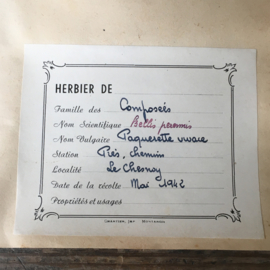 HERBIER DE
Famille des Composées
Nom Scientifique Bellis perennis
Nom Vulgaire Paquerette vivace
Station Prés, chemins
Localité Le Chesnay
Date de la récolte Mai 1942
Propriétés et usages